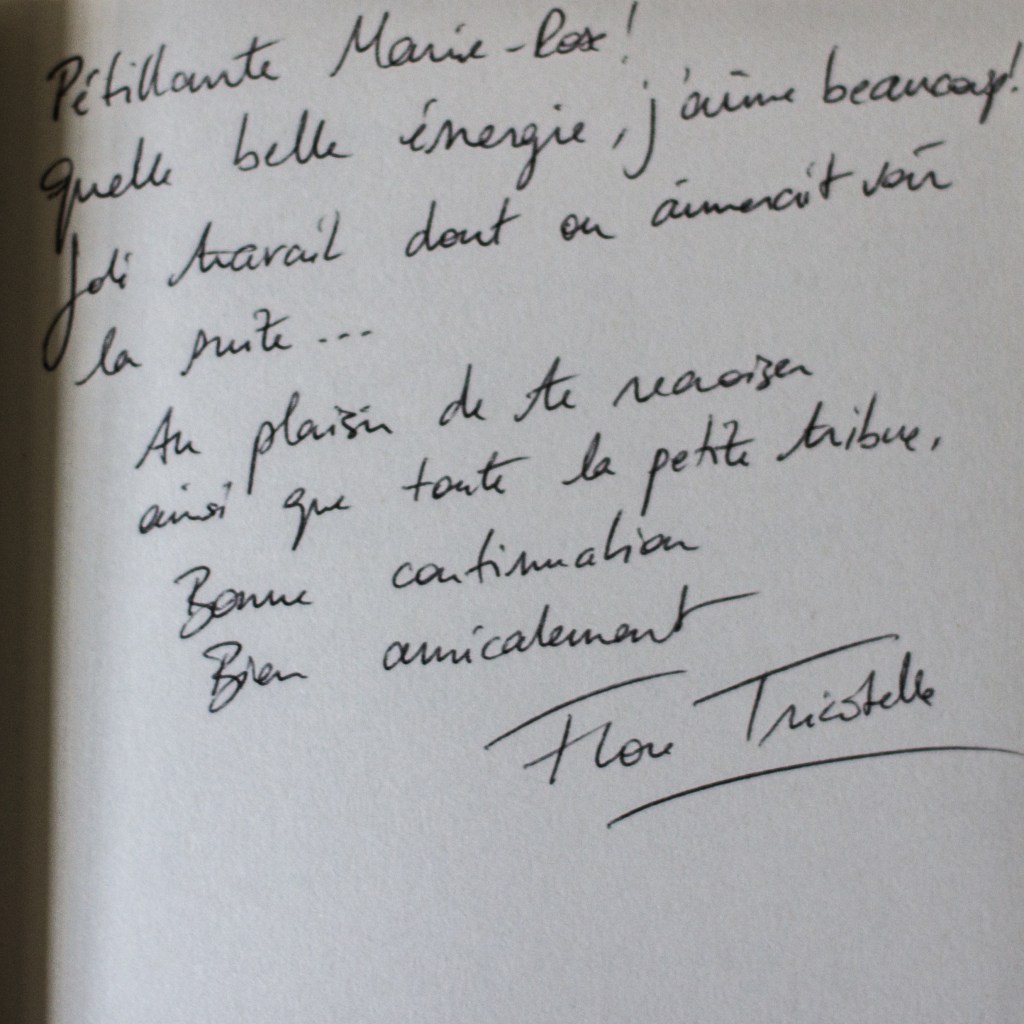 Pétillante Marie-Rox !
Quelle belle énergie, j'aime beaucoup!
Joli travail dont on aimerait voir
la suite ...
Au plaisir de te recroiser
ainsi que toute la petite tribue.
Bonne continuation
Bien amicalement
Flore Tricotelle